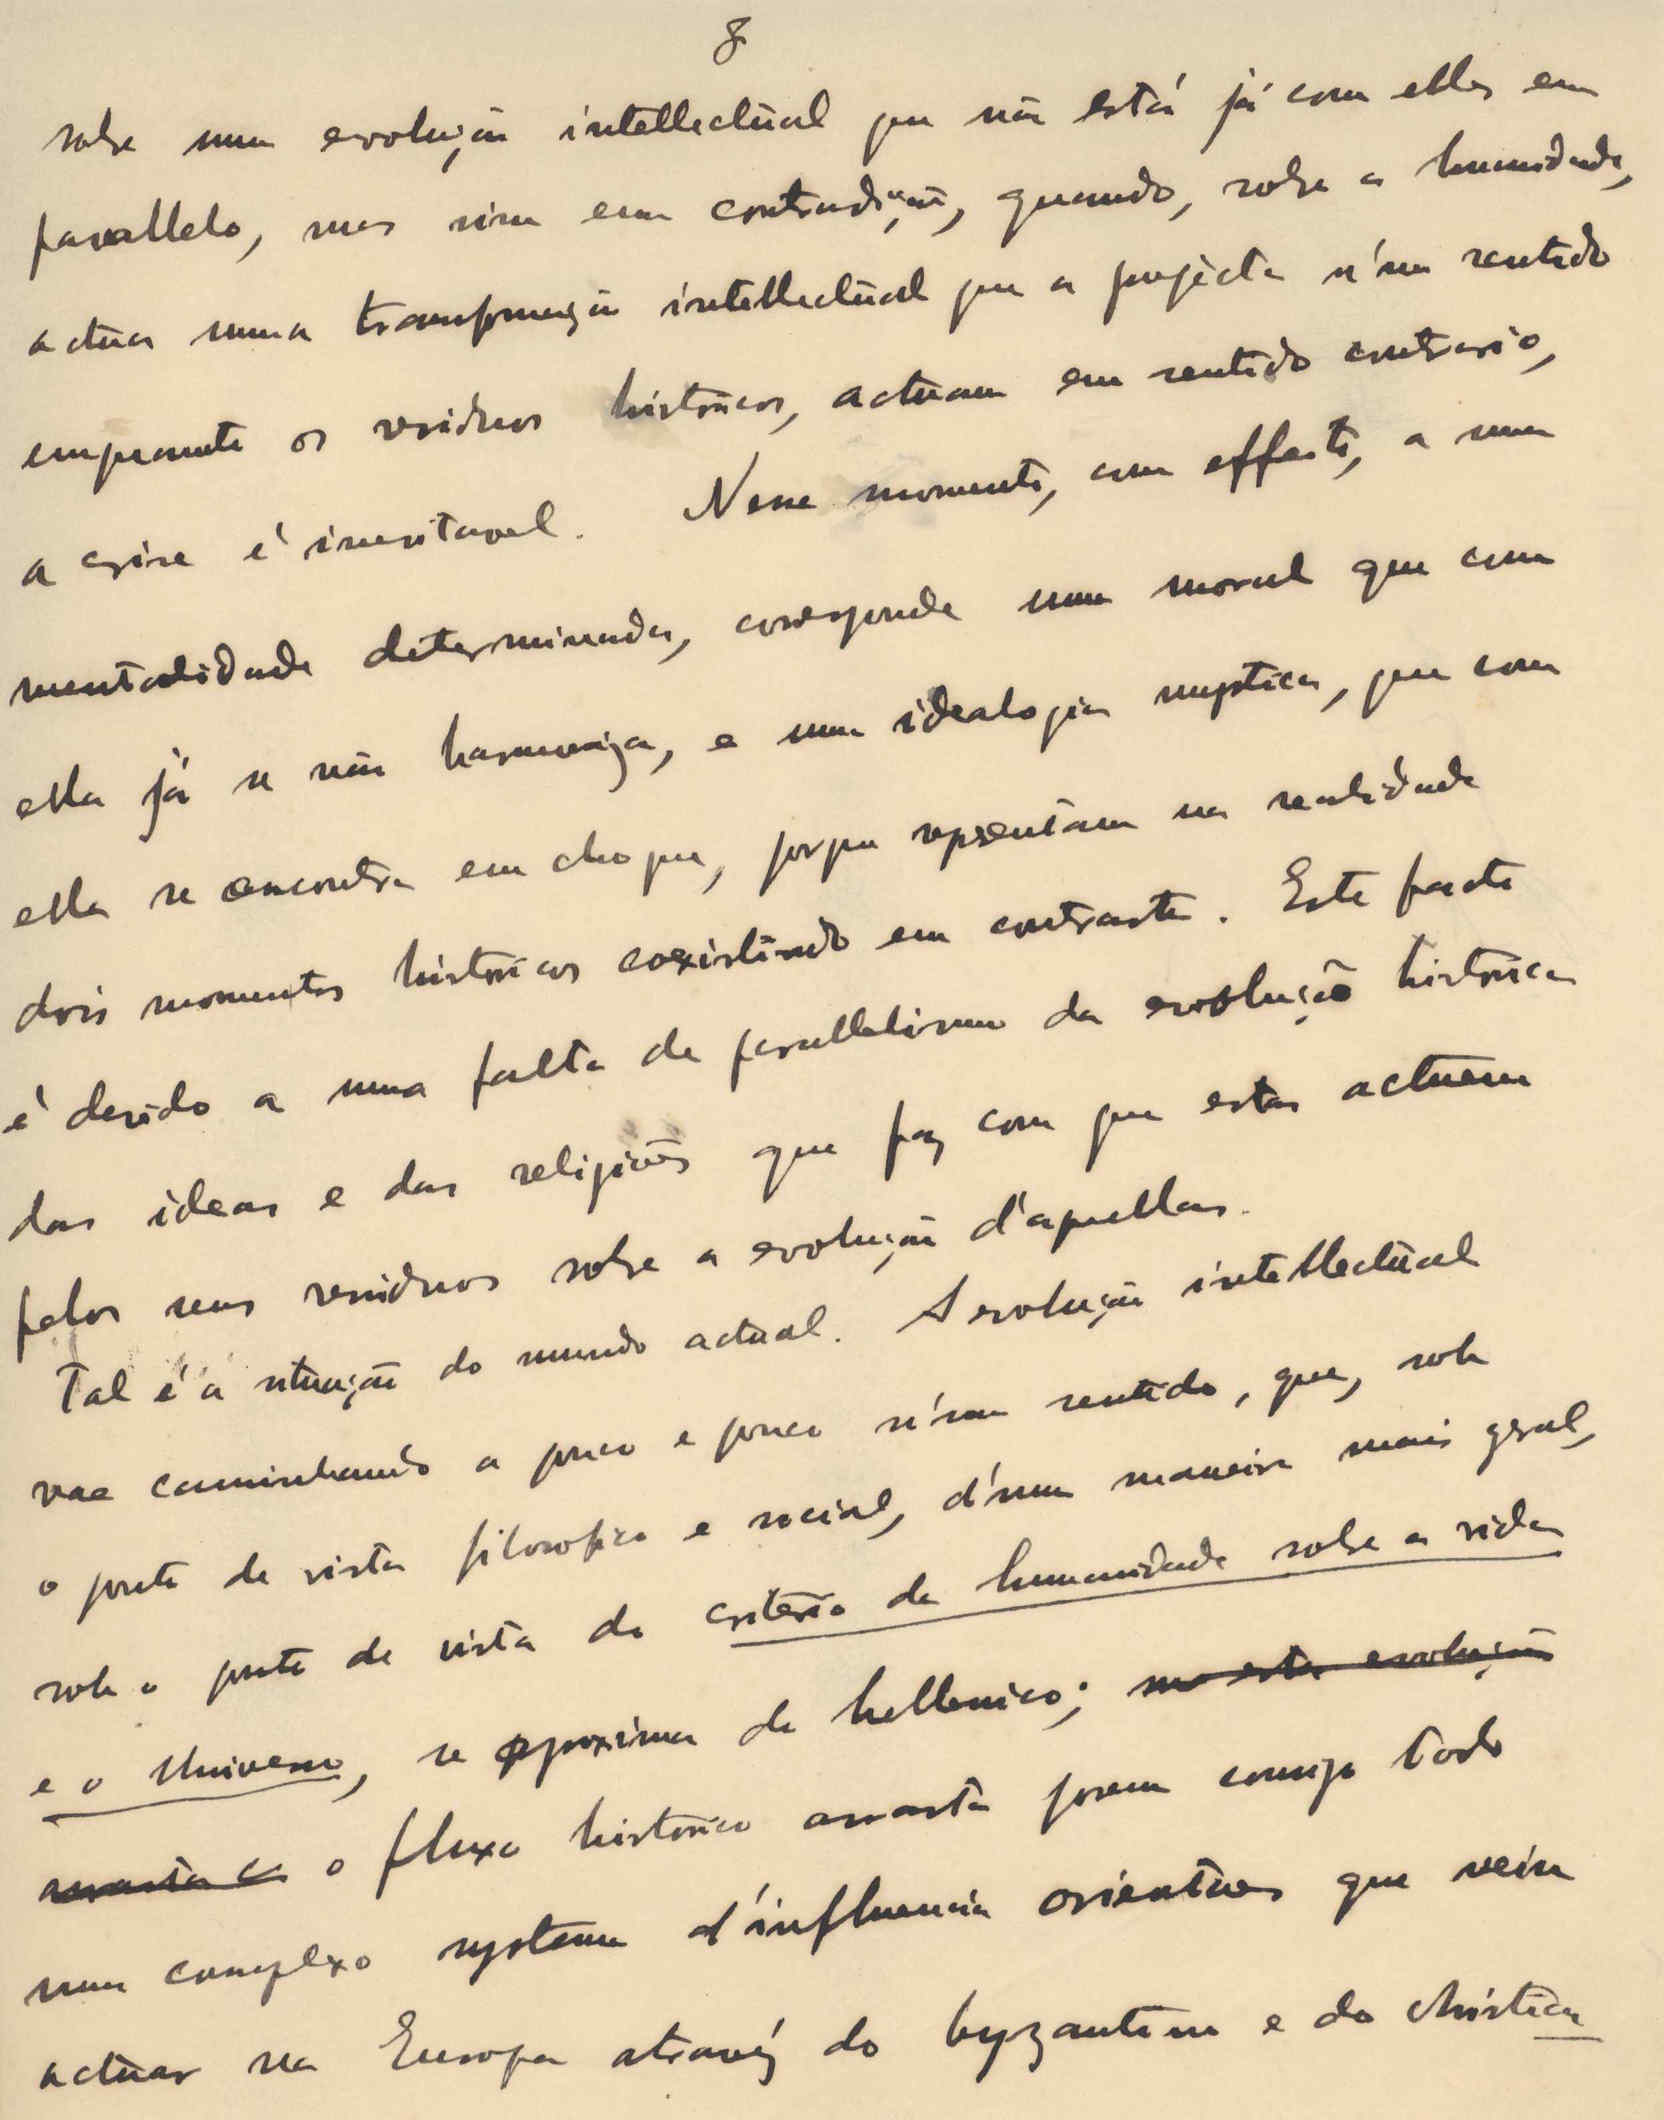 8
sobre uma evolução intellectual que não está já com elles em
parallelo, mas sim em contradição, quando, sobre a humanidade,
actua uma transformação intellectual que a projécta n'um sentido
emquanto os residuos historicos, actuam em sentido contrario,
a crise é inevitavel. Nesse momento, com effeito, a uma
mentalidade determinada, corresponde uma moral que com
ella já se não harmoniza, e uma idealogia mystica, que com
ella se encontra em choque, porque representam na realidade
dois momentos historicos coexistindo em contraste. Este facto
é devido a uma falta de parallelismo da evolução historica
das ideas e das religiões que faz com que estas actuem
pelos seus residuos sobre a evolução d'aquellas.
Tal é a situação do mundo actual. A evolução intellectual
vae caminhando a pouco e pouco n'um sentido, que, sob
o ponto de vista filosofico e social, d'uma maneira mais geral,
sob o ponto de vista do criterio da humanidade sobre a vida
e o Universo, se approxima do hellenico; mas esta evolução
arrasta c o fluxo historico arrasta porem comsigo todo
um complexo systema d'influencia orientaes que veiu
actuar na Europa atravéz do byzantino e do christia